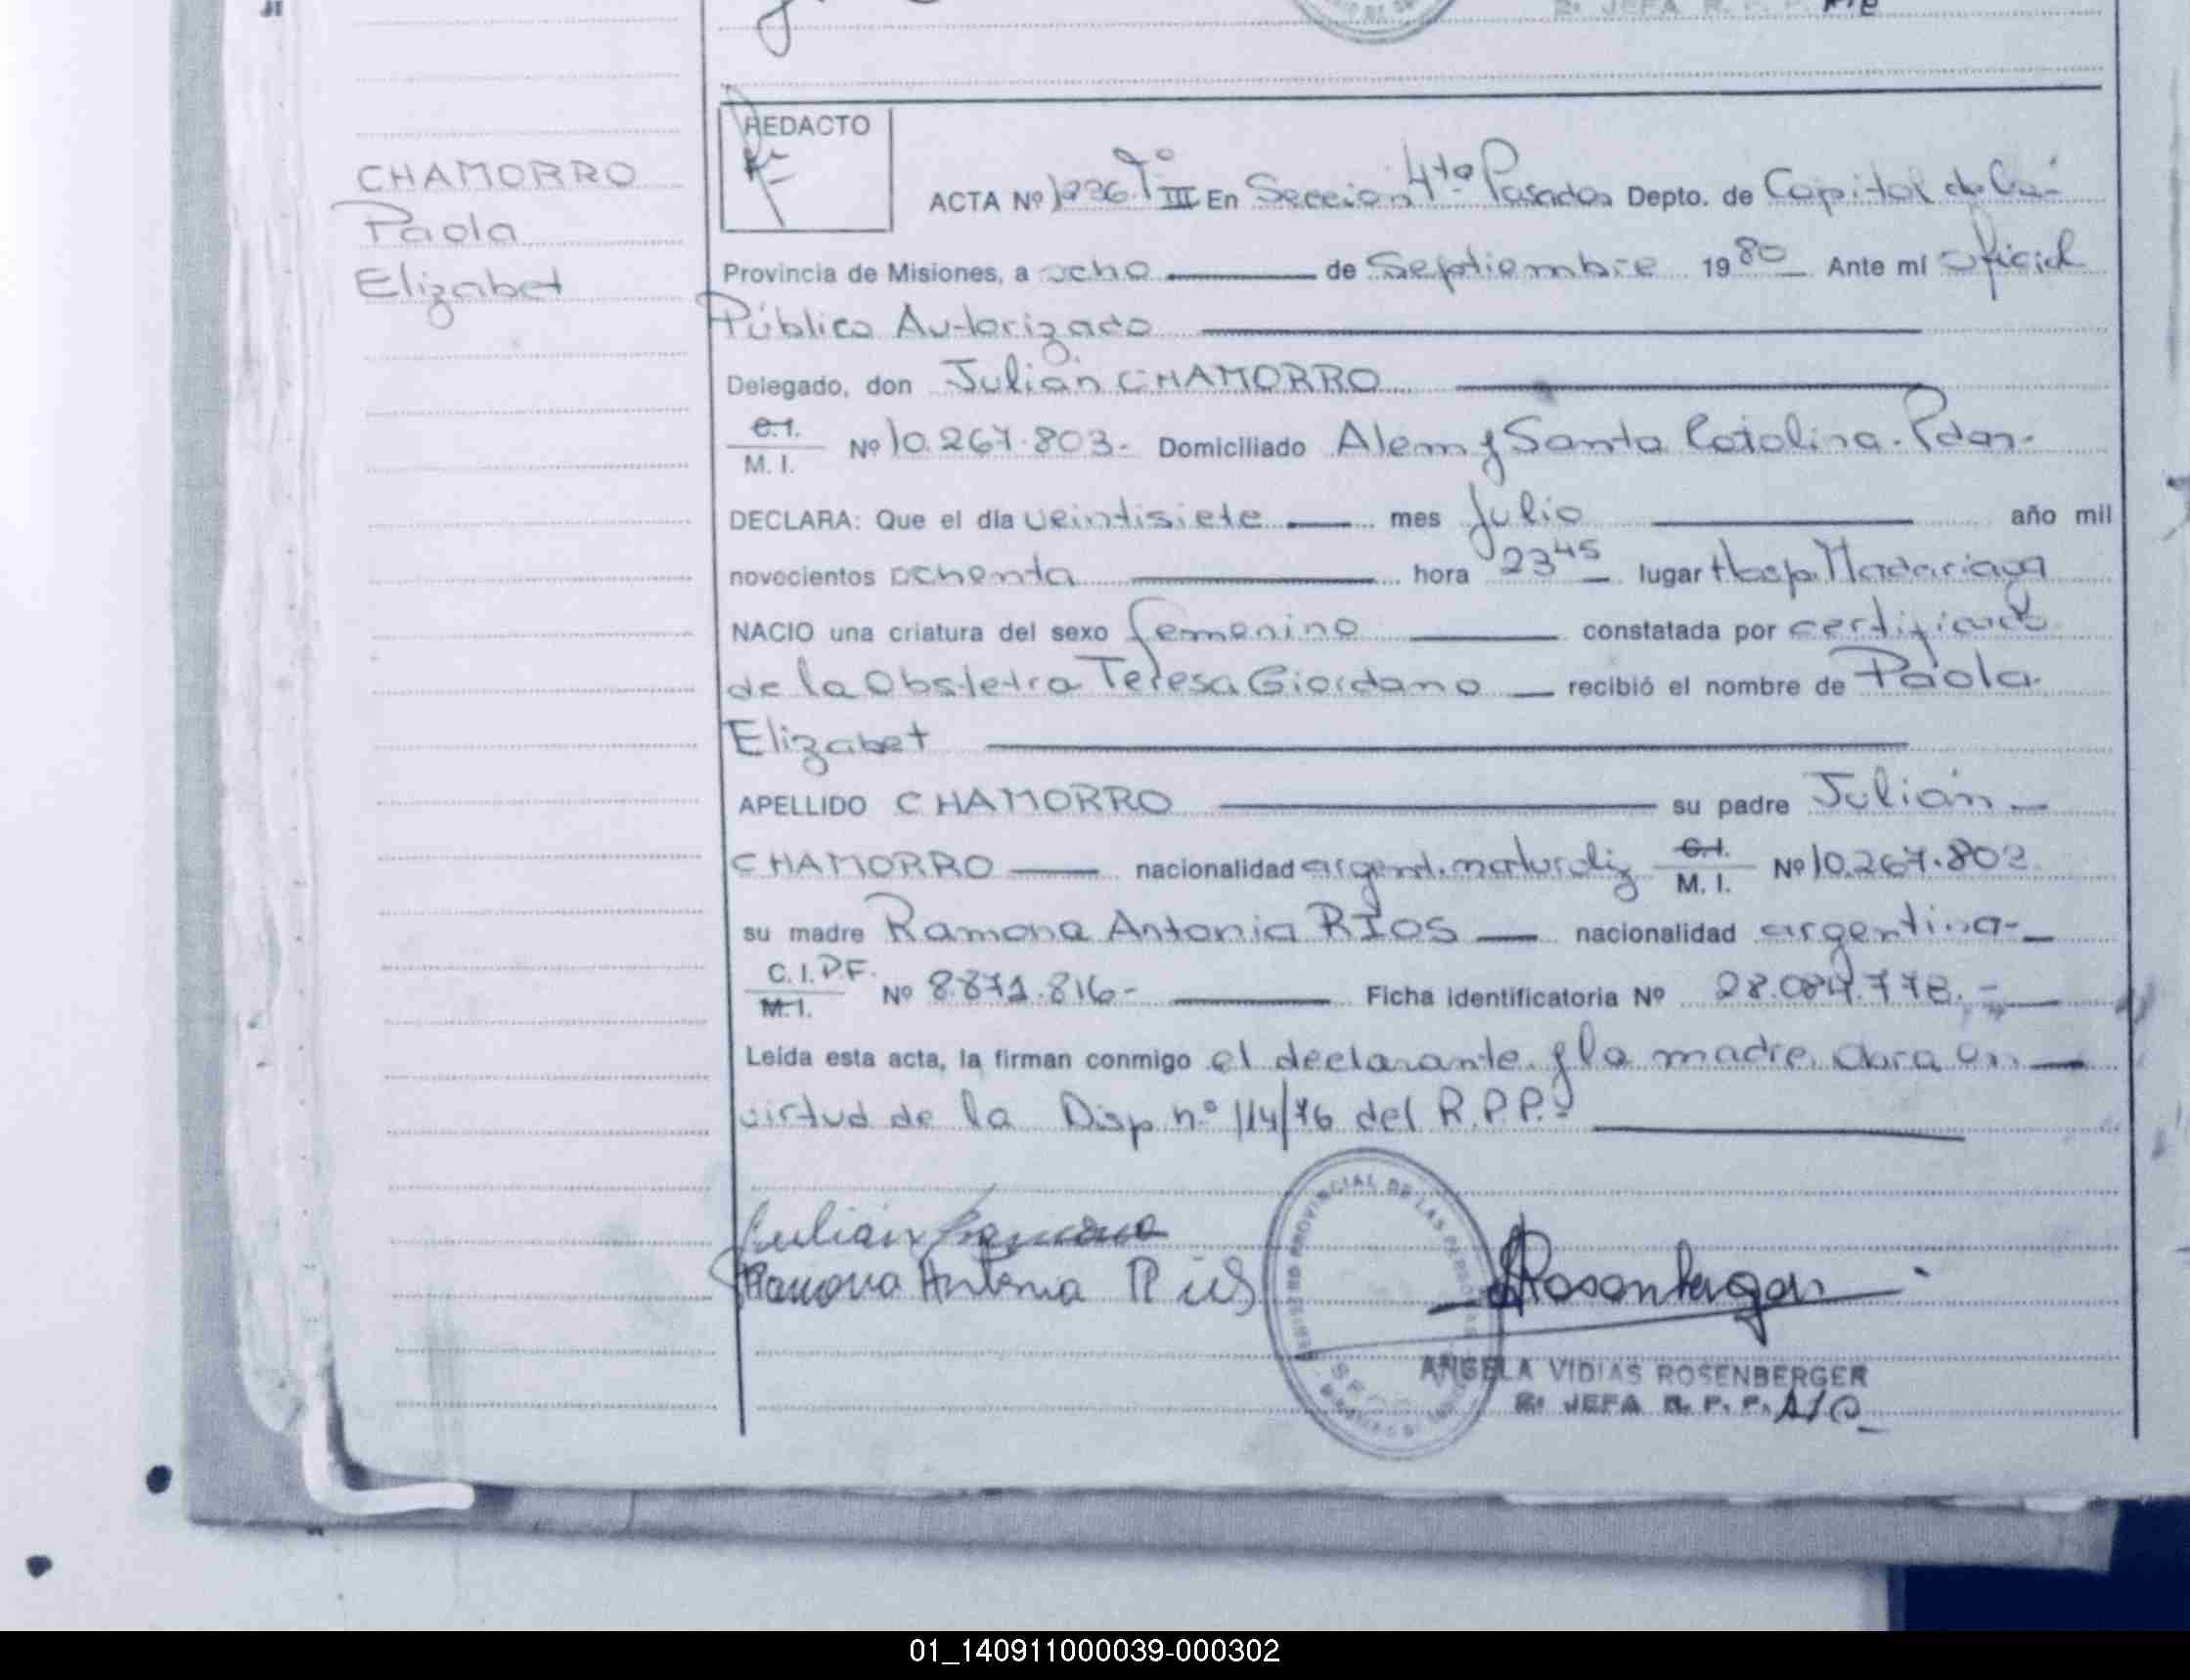 CHAMORRO
Paola
Elizabet
REDACTO
ACTA Nº 1236. Tº III En Sección 4ta Posadas Depto. de Capital de la
Provincia de Misiones, a ocho de Septiembre 1980 Ante mí Oficial
Público Autorizado
Delegado, don Julián CHAMORRO
C.I.
M. I. Nº 10.267.803.- Domiciliado Alem y Santa Catalina. Pdas.-
DECLARA: Que el día veintisiete mes Julio año mil
novecientos ochenta hora 23 45 lugar Hosp. Madariaga
NACIO una criatura del sexo femenino constatada por certificado
de la Obstetra Teresa Giordano recibió el nombre de Paola
Elizabet
APELLIDO CHAMORRO su padre Julián
CHAMORRO nacionalidad argent. naturaliz C.I.
M. I. Nº 10.267.803
su madre Ramona Antonia RIOS nacionalidad argentina-
C.I.P.F.
M.I. Nº 8.871.816- Ficha identificatoria Nº 28.084.778.-
Leída esta acta, la firman conmigo el declarante y la madre. Obra en
virtud de la Disp. nº 114/76 del R.P.P.-
Julián Chamorro
Ramona Antonia Rios
PROVINCIAL DE LAS PERSONAS
Rosenberger
ANGELA VIDIAS ROSENBERGER
JEFA R. P. P. A/C
01_140911000039-000302